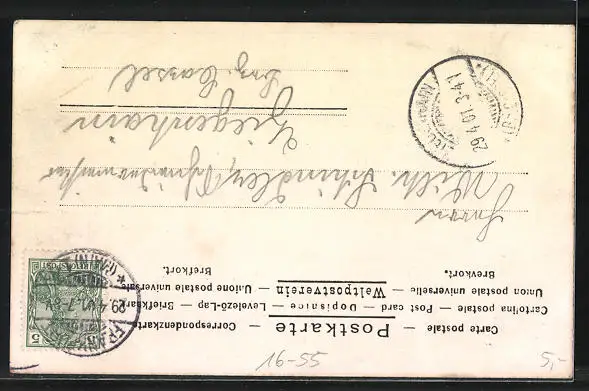 Carte postale — Postkarte — Correspondenzkarte
Cartolina postale — Post card — Dopisnice — Levelező-Lap — Briefkaart
Union postale universelle — Weltpostverein — Unione postale universale
Brevkort. Brefkort.
5
DEUTSCHES REICHSPOST
FRANKFURT
29.4.01.
(MAIN)
Herrn
Wilh. Schindler,
Ziegenhain
Bez. Cassel
29.4.01.3-4N
16-55
5,-